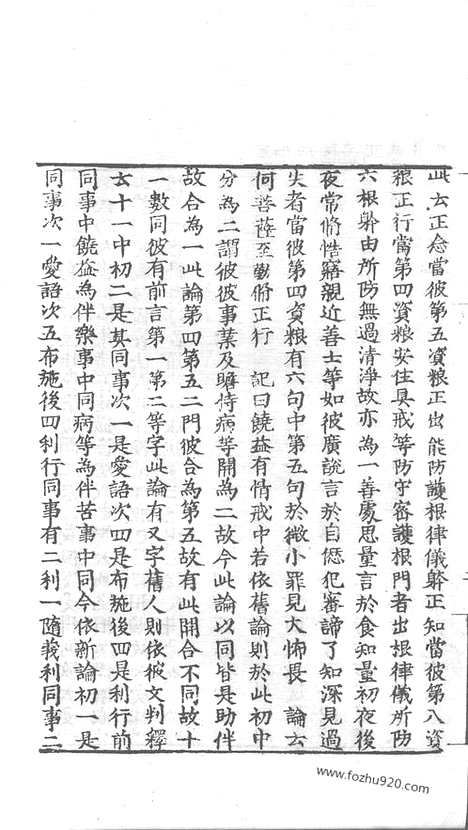 此云正念當彼第五資粮正出能防護根律儀躰正知當彼第八資
粮正行當第四資粮安住具戒等防守審護根門者出根律儀所防
六根躰由所防無過清淨故亦為一善慮思量言於食知量初夜後
夜常脩悎寤親近善士等如彼廣說言於自愆犯審諦了知深見過
失者當彼第四資粮有六句中第五句於微小罪見大怖畏 論云
何菩薩至勤脩正行 記曰饒益有情戒中若依舊論則於此初中
分為二謂彼彼事業及瞻侍病等開為二故今此論以同皆是助伴
故合為一此論第四第五二門彼合為第五故有此開合不同故十
一數同彼有前言第一第二等字此論有又字舊人則依彼文判釋
云十一中初二是其同事次一是愛語次四是布施後四是利行前
同事中饒益為伴樂事中同病等為伴苦事中同今依新論初一是
同事次一愛語次五布施後四利行同事有二利一隨義利同事二
www.fozhu920.com